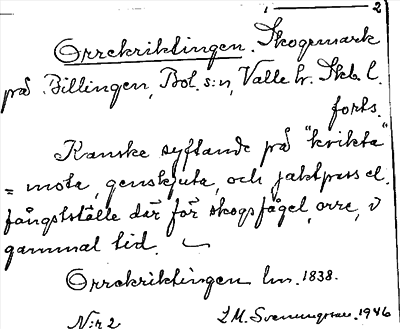 1 — 2
Orrekriktingen. Skogsmark
på Billingen, Bol. s:n, Valle hr. Skb. l.
forts.
Kanske syftande på "krikta"
= mota, genskjuta, och jaktpass el.
fångstställe där för skogsfågel, orre, i
gammal tid.
Orrekriktingen lm. 1838.
N:r 2 L.M. Svenungsson. 1946